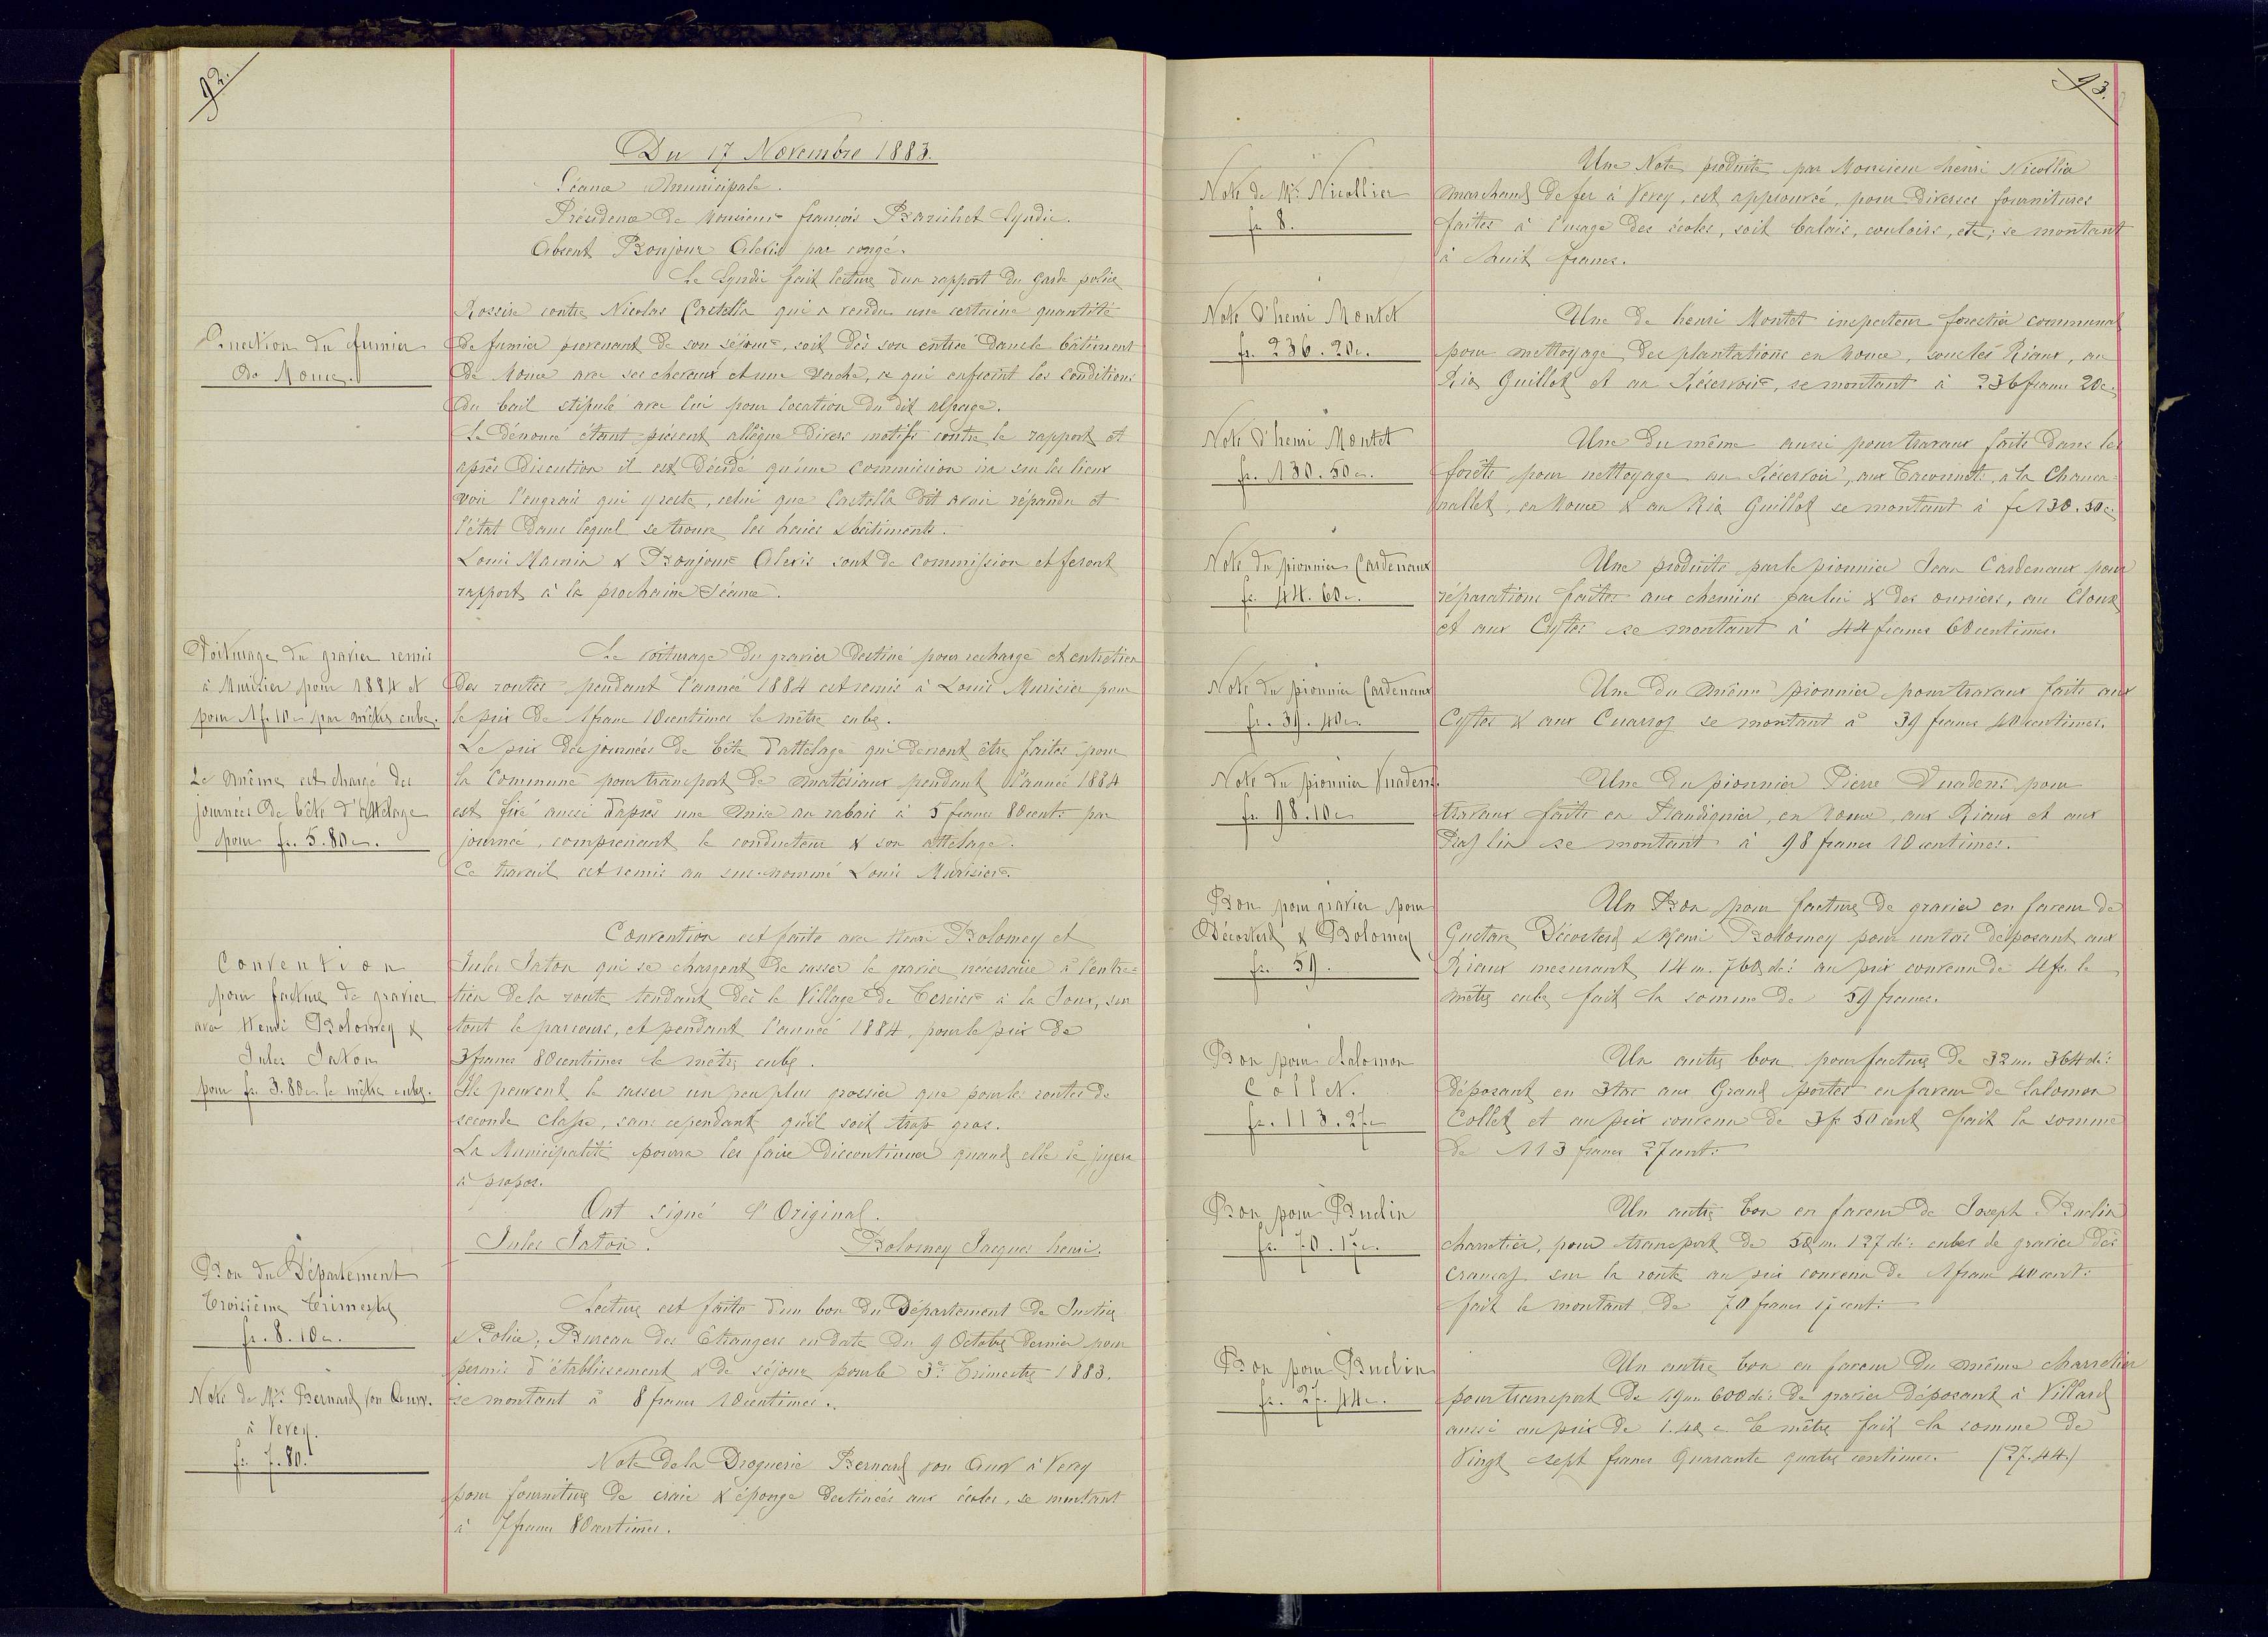 92.
Du 17 Novembre 1883.
Séance Municipale.
Présidence de Monsieur françois Barichet Syndic.
Absent Bonjour Alexis par congé.
Le Syndic fait lecture d'un rapport du garde police
Rossire contre Nicolas Castella qui a vendu une certaine quantité
Question du fumier
de Mouce.
de fumier provenant de son séjour, soit dès son entrée dans le bâtiment
de Mouce avec ses chevaux et une vache, ce qui enfreint les conditions
du bail stipulé avec lui pour location du dit alpage.
Le dénoncé étant présent allègue divers motifs contre le rapport et
après discution il est décidé qu'une commission ira sur les lieux
voir l'engrais qui y reste, celui que Castella dit avoir répandu et
l'état dans lequel se trouve les haies & bâtiments.
Louis Mamin & Bonjour Alexis sont de commission et feront
rapport à la prochaine séance.
Voiturage du gravier remis
à Murisier pour 1884 et
pour 1 fr. 10 c. par mètre cube.
Le voiturage du gravier destiné pour recharge et entretien
des routes pendant l'année 1884 est remis à Louis Murisier pour
le prix de 1 franc 10 centimes le mètre cube.
Le même est chargé des
journées de bête d'attelage
pour fr. 5.80 c.
Le prix des journées de bête d'attelage qui devront être faites pour
la Commune pour transport de matériaux pendant l'année 1884
est fixé aussi d'après une mise au rabais à 5 francs 80 cent: par
journée, comprenant le conducteur & son attelage.
Ce travail est remis au sus-nommé Louis Murisier.
Convention
pour facture de gravier
avec Henri Bolomey &
Jules Jaton
pour fr. 3.80 c. le mètre cube.
Convention est faite avec Henri Bolomey et
Jules Jaton qui se chargent de casser le gravier nécessaire à l'entre=
tien de la route tendant dès le Village de Cercier à la Joux, sur
tout le parcours, et pendant l'année 1884, pour le prix de
3 francs 80 centimes le mètre cube.
Ils peuvent le casser un peu plus grossier que pour les routes de
seconde classe, sans cependant qu'il soit trop gros.
La Municipalité pourra les faire discontinuer quand elle le jugera
à propos.
Ont signé l'Original.
Jules Jaton.
Bolomey Jacques henri.
Bon du Département
Troisième Trimestre
fr. 8.10 c.
Lecture est faite d'un bon du Département de Justice
& Police, Bureau des Etrangers en date du 9 Octobre dernier pour
permis d'établissement & de séjour pour le 3e Trimestre 1883.
se montant à 8 francs 10 centimes.
Note de Mr. Bernard son Succr.
à Vevey.
fr. 7.80.
Note de la Droguerie Bernard son Succr à Vevey
pour fourniture de craie & éponge destinées aux écoles, se montant
à 7 francs 80 centimes.
93.
Note de Mr. Nicollier
fr 8.
Une Note produite par Monsieur henri Nicollier
marchand de fer à Vevey, est approuvée, pour diverses fournitures
faites à l'usage des écoles, soit balais, couloirs, etc; se montant
à huit francs.
Note d'henri Montet
fr. 236.20 c.
Une de henri Montet inspecteur forestier communal
pour nettoyage des plantations en Mouce, sous les Riaux, au
Ria Guillot et au Réservoir, se montant à 236 francs 20 c.
Note d'henri Montet
fr. 130.50 c.
Une du même aussi pour travaux faits dans les
forêts pour nettoyage au Réservoir, aux Tacounets, à la Chauca=
nallet, en Mouce & au Ria Guillot se montant à fr 130.50 c.
Note du pionnier Cardenaux
fr. 44.60 c.
Une produite par le pionnier Jean Cardenaux pour
réparations faites aux chemins par lui & des ouvriers, au Cloux
et aux Cystes se montant à 44 francs 60 centimes.
Note du pionnier Cardenaux
fr. 39.40 c.
Une du même pionnier pour travaux faits aux
Cystes & aux Cuarroz se montant à 39 francs 40 centimes.
Note du pionnier Vuadens.
fr. 98.10 c
Une du pionnier Pierre Vuadens pour
travaux faits en Plandignier, en Mouce, aux Riaux et aux
Praz lin se montant à 98 francs 10 centimes.
Bon pour gravier pour
Décosterd & Bolomey
fr. 59.
Un Bon pour facture de gravier en faveur de
Gustave Décosterd & Henri Bolomey pour un tas déposant aux
Riaux mesurant 14 m. 760 dé: au prix convenu de 4 fr. le
mètre cube fait la somme de 59 francs.
Bon pour Salomon
Collet.
fr. 113.27 c
Un autre bon pour facture de 32 m 364 dé:
déposant en 3 tas aux Grand portes en faveur de Salomon
Collet et au prix convenu de 3 fr 50 cent fait la somme
de 113 francs 27 cent:
Bon pour Buclin
fr. 70.17 c.
Un autre bon en faveur de Joseph Buclin
charretier, pour transport de 50 m. 127 dé: cubes de gravier dès
Crausaz sur la route au prix convenu de 1 franc 40 cent:
fait le montant de 70 francs 17 cent:
Bon pour Buclin
fr. 27.44 c.
Un autre bon en faveur du même charretier
pour transport de 19 m 600 dé: de gravier déposant à Villard
aussi au prix de 1.40 c le mètre fait la somme de
Vingt sept francs Quarante quatre centimes. (27.44)